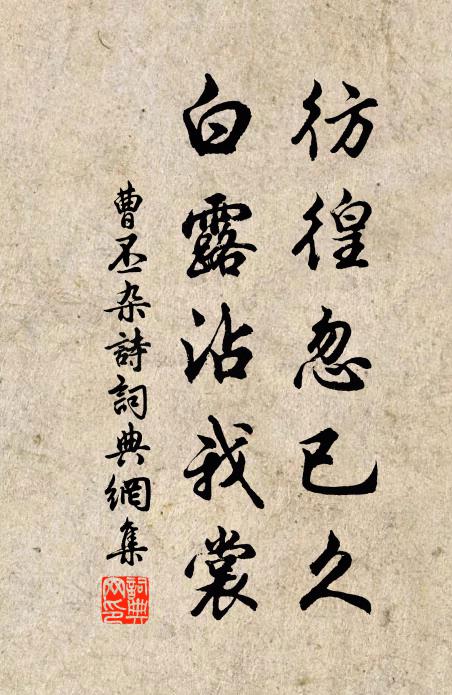 彷徨忽已久
白露沾我裳
曹丕杂詩詞典網集
詞典
网印